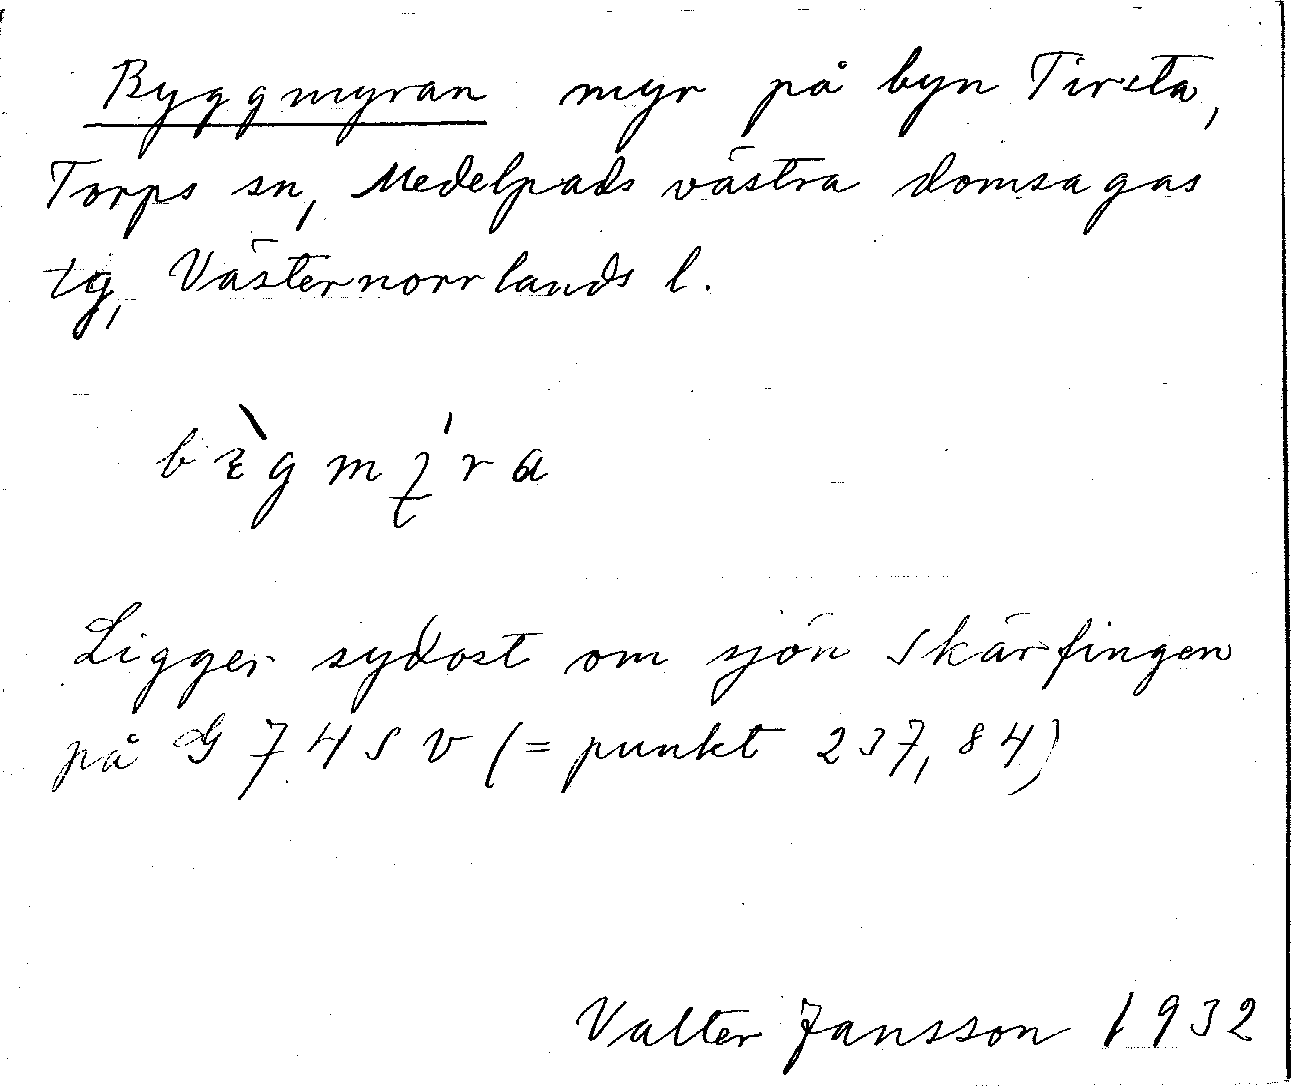 Byggmyran myr på byn Tirsta,
Torps sn, Medelpads västra domsagas
tg, Västernorrlands l.
Ligger sydost om sjön Skärfingen
på G 74 S V (= punkt 237,84)
Valter Jansson 1932